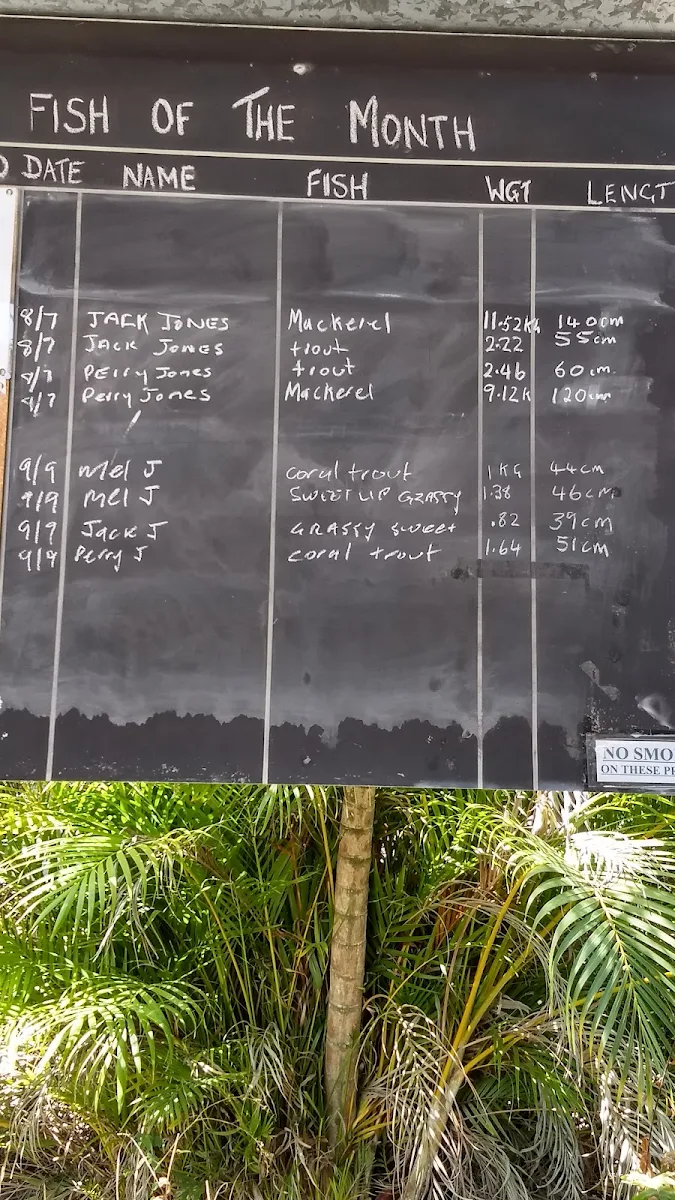 FISH OF THE MONTH
D DATE NAME FISH WGT LENGT
8/7 JACK JONES Mackerel 11.52kg 140cm
8/7 JACK JONES trout 2.22 55cm
8/7 PERRY JONES trout 2.46 60cm.
9/7 Perry Jones Mackerel 9.12k 120cm
9/9 Mel J coral trout 1KG 44cm
9/9 MEl J SWEETLIP GRASSY 1.38 46cm
9/9 Jack J GRASSY SWEET .82 39cm
9/9 Perry J coral trout 1.64 51cm
NO SMO
ON THESE PR